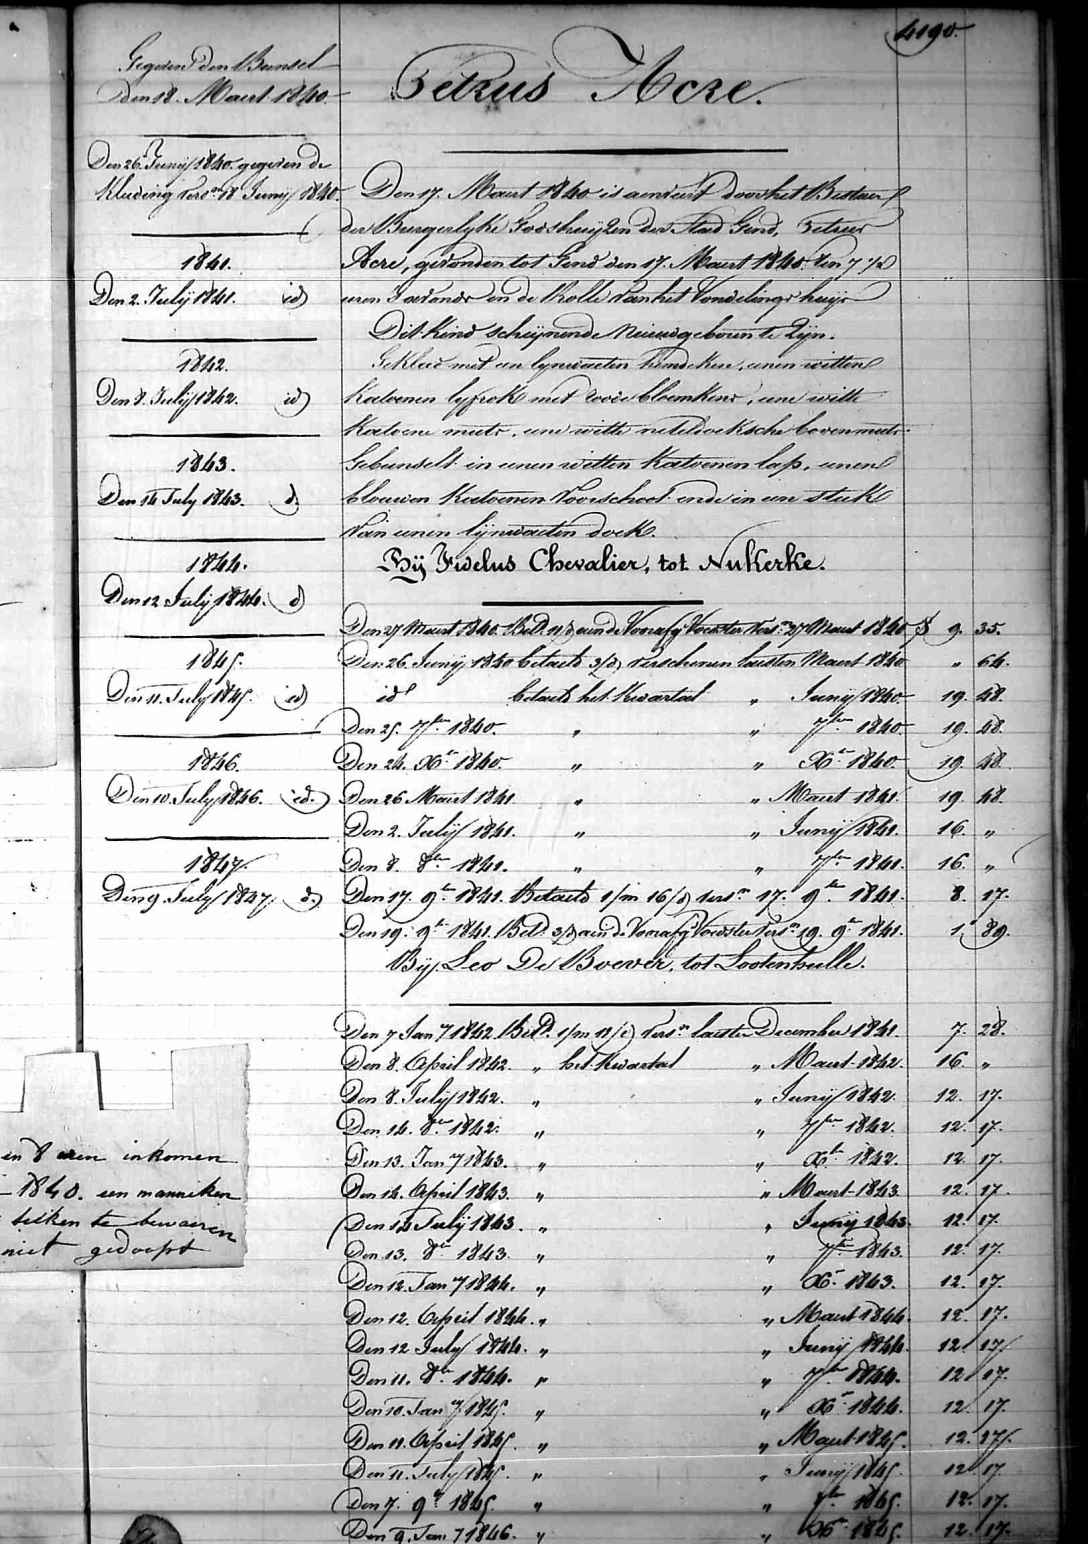 4190.
Gegeven den Bunsel
Den 18. Maert 1840.
Den 26. Junij 1840. gegeven de
kleeding vers.en 18 Junij 1840.
1841.
Den 2. Julij 1841. id
1842.
Den 8. Julij 1842. id
1843.
Den 14 July 1843. d
1844.
Den 12 Julij 1844. d
1845.
Den 11. July 1845. id
1846.
Den 10. July 1846. id.
1847.
Den 9 July 1847. d.
Petrus Acre.
Den 17. Maert 1840 is aenveerd door het Bestuer
der Burgerlyke Godshuizen der Stad Gend, Petrus
Acre, gevonden tot Gend den 17. Maert 1840. ten 7 ½
uren s'avonds in de Rolle van het Vondelings huijs
Dit Kind schijnende nieuwgeboren te Zijn.
Gekleed met een lynwaeten hemdeken, eenen witten
katoenen lyfrok met roode bloemkens, eene witte
katoene muts, eene witte neteldoeksche bovenmuts.
Gebunselt in eenen witten katoenen lap, eenen
blauwen katoenen voorschoot ende in een stuk
van eenen lijnwaeten doek.
Bij Fidelus Chevalier, tot Nukerke.
Den 27 Maert 1840. Bet.d 11/d aen de Voorafg Voedster vers.en 27 Maert 1840 f 9. 35.
Den 26. Junij 1840 betaeld 3/d verschenen laesten Maert 1840 " 64.
id betaeld het kwartael " Junij 1840. 19. 48.
Den 25. 7ber 1840. " " 7ber 1840. 19. 48.
Den 24. Xr 1840. " " Xr 1840. 19. 48
Den 26 Maert 1841 " " Maert 1841. 19. 48.
Den 2. Julij 1841. " " Junij 1841. 16. "
Den 8. 8ber 1841. " " 7ber 1841. 16. "
Den 17. 9br 1841. Betaeld 1/m 16/d vers.en 17. 9br 1841. 8. 17.
Den 19. 9br 1841. Bet.d 3/d aen de Voorafg Voedster vers.en 19. 9br 1841. 1. 89.
Bij Leo De Boever, tot Lootenhulle.
Den 7 Jan.y 1842. Bet.d. 1/m 13/d vers.en laesten December 1841. 7. 28.
Den 8. April 1842. " het kwartael " Maert 1842. 16. "
Den 8. Julij 1842. " " Junij 1842. 12. 17.
Den 14. 8br 1842. " " 7ber 1842. 12. 17.
Den 13. Jan.y 1843. " " Xbr 1842. 12 17.
Den 14. April 1843. " " Maert 1843. 12. 17.
Den 14 Julij 1843. " " Junij 1843. 12. 17.
Den 13. 8br 1843. " " 7br 1843. 12. 17.
Den 12. Jan.y 1844. " " Xr 1843. 12. 17.
Den 12. April 1844. " " Maert 1844. 12. 17.
Den 12 July 1844. " " Junij 1844. 12. 17
Den 11. 8br 1844. " " 7br 1844. 12 17.
Den 10. Jan.y 1845. " " Xr 1844. 12. 17.
Den 11. April 1845. " " Maert 1845. 12. 17.
Den 11. July 1845. " " Junij 1845. 12 17.
Den 7. 9br 1845. " " 7br 1845. 12. 17.
Den 9. Jan.y 1846. " " Xbr 1845. 12. 17.
en 8 uren inkomen
1840. een manneken
teeken te bewaeren
niet gedoopt